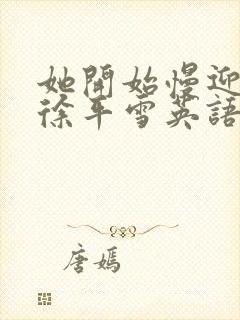 她開始慢迎
徐平雪英語
唐嫣